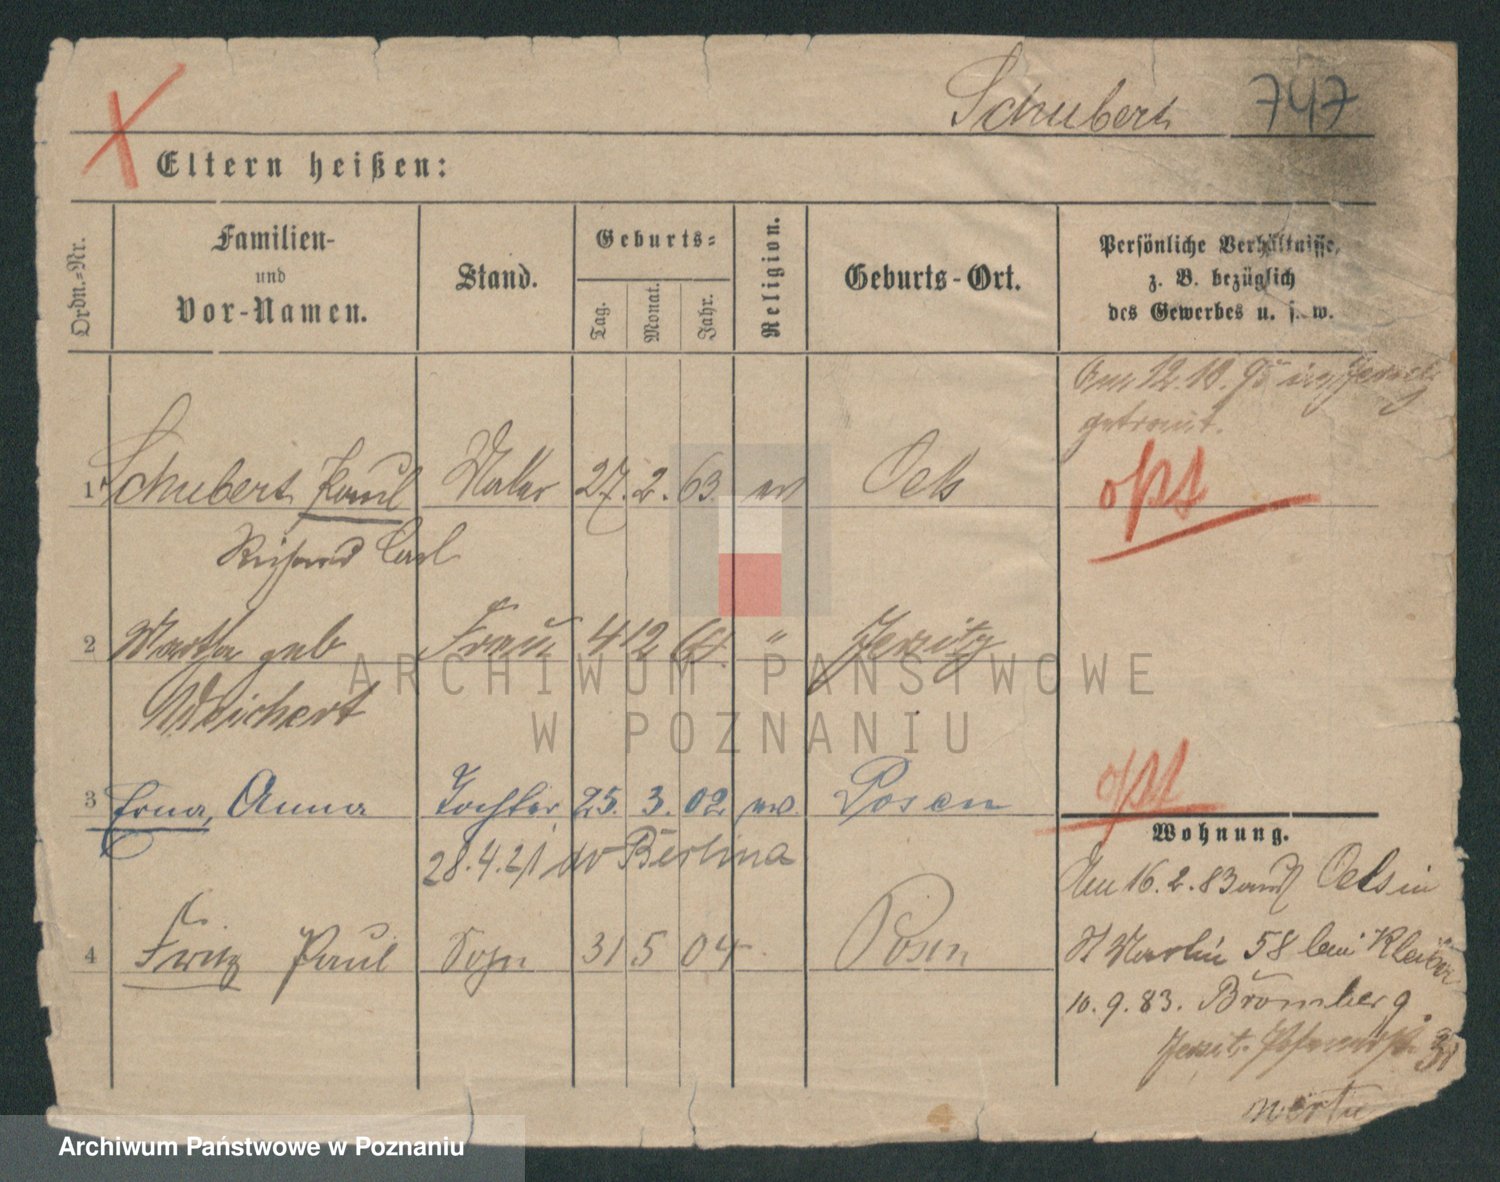 Schubert 747
Eltern heißen:
Ordn.-Nr.
Familien-
und
Vor-Namen.
Stand.
Geburts-
Tag.
Monat.
Jahr.
Religion.
Geburts-Ort.
Persönliche Verhältnisse,
z. B. bezüglich
des Gewerbes u. s. w.
Am 12.10.95 in Jersitz
getraut.
1 Schubert Paul Maler 27. 2. 63. ev Oels
opt
Richard Carl
2 Martha geb Frau 4 12 " Jersitz
Weichert
3 Erna, Anna Tochter 25. 3. 02 ev. Posen
opt
28.4.21 Berlina
Wohnung.
Am 16.2.83 aus Oels in
St Martin 58 bei
4 Fritz Paul Sohn 31 5 04 Posen
10.9.83. Bromberg
Jersit.
ARCHIWUM PAŃSTWOWE
W POZNANIU
Archiwum Państwowe w Poznaniu